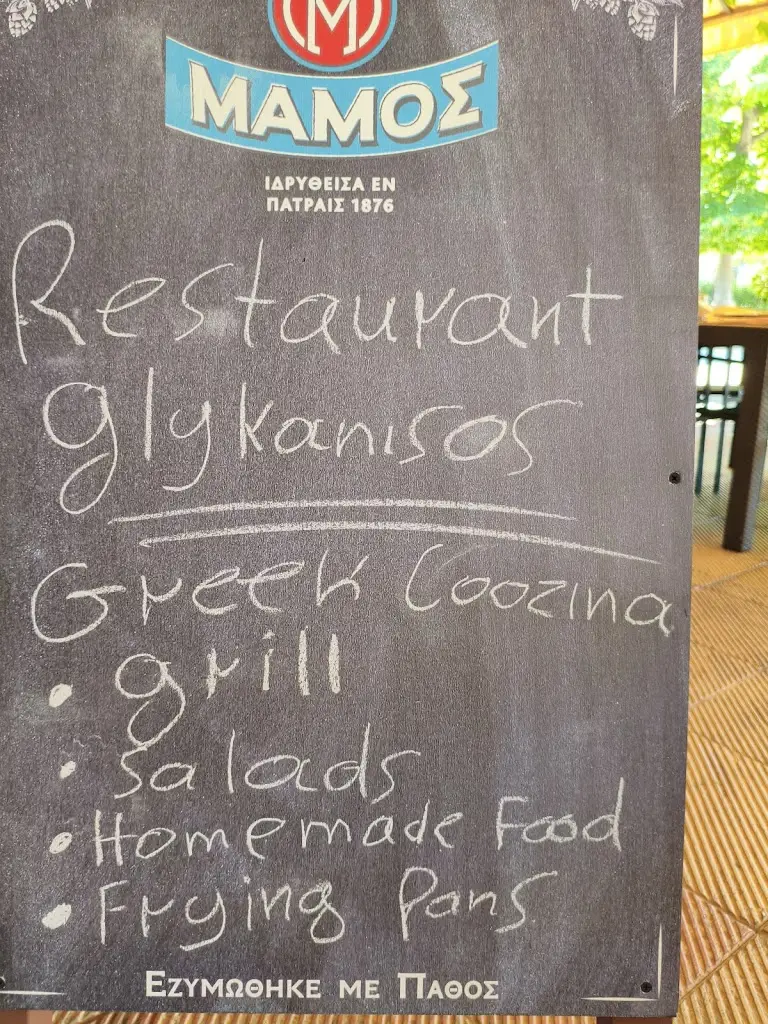 ΜΑΜΟΣ
ΙΔΡΥΘΕΙΣΑ ΕΝ
ΠΑΤΡΑΙΣ 1876
Restaurant
glykanisos
Greek Coozina
• grill
• Salads
• Homemade Food
• Frying Pans
ΕΖΥΜΩΘΗΚΕ ΜΕ ΠΑΘΟΣ